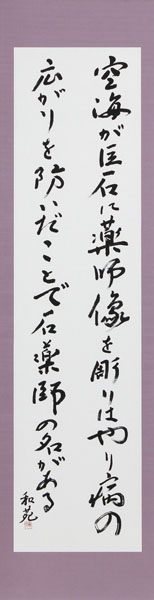 空海が巨石に薬師像を彫りはやり病の
広がりを防いだことで石薬師の名がある
和苑